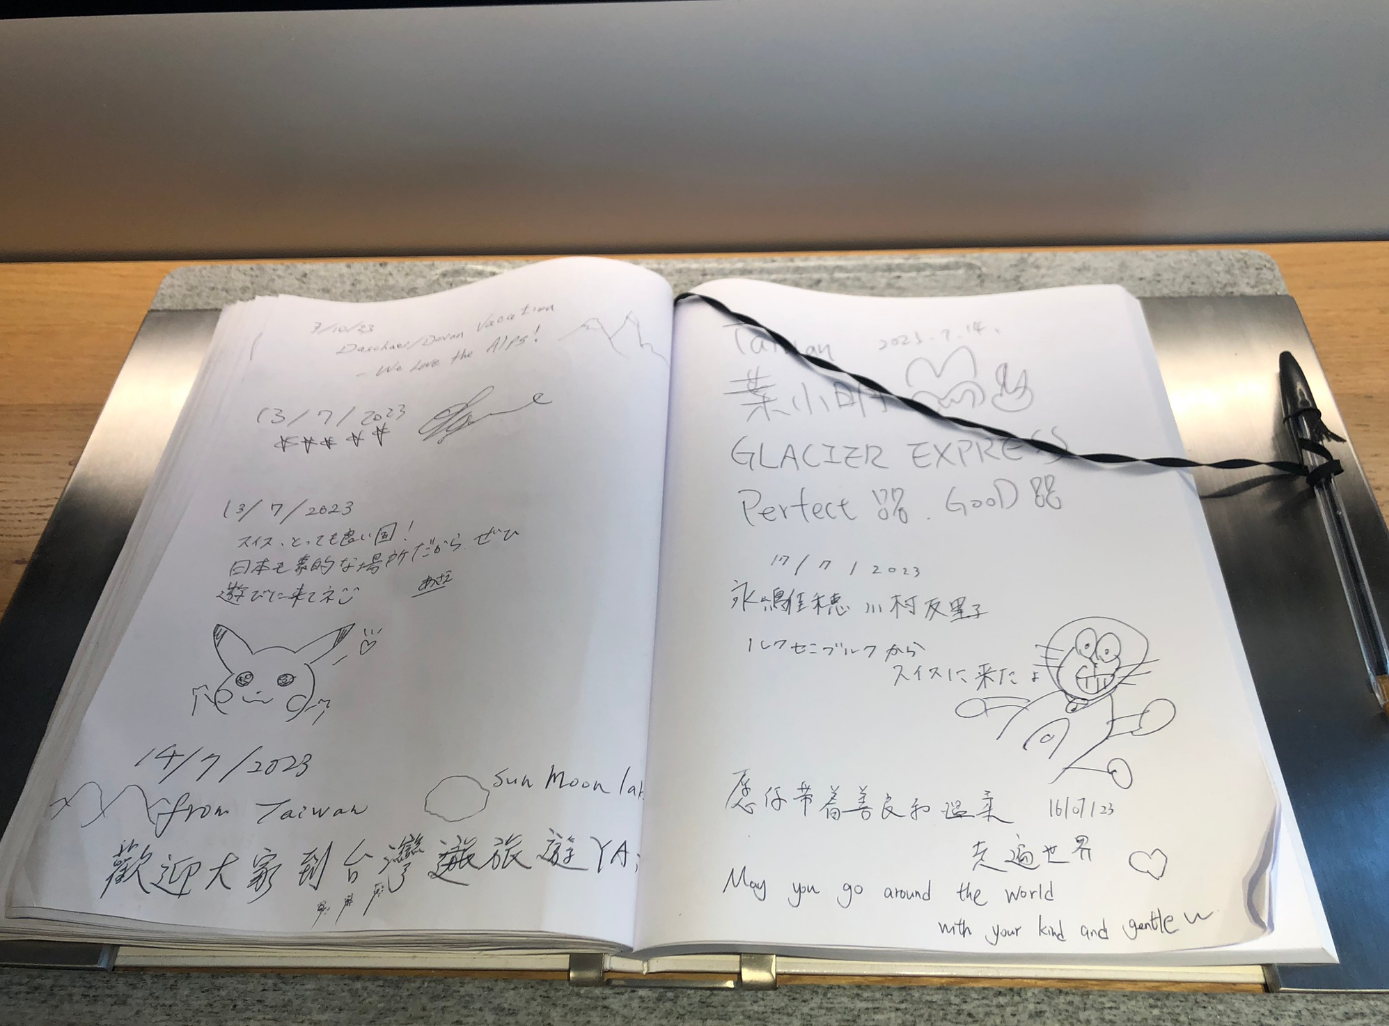 7/10/23
Vacation
- We love the Alps!
13/7/2023
13/7/2023
スイス、とっても良い国!
日本も素的な場所だから、ぜひ
遊びに来てネ
14/7/2023
from Taiwan
Sun Moon la
歡迎大家到台灣 旅遊YA
Taiwan 2023.7.14.
葉小明
GLACIER EXPRESS
Perfect 器. GOOD 器
17/7/2023
永嶋佳穂 川村友里子
ルクセンブルクから
スイスに来たよ
愿你带着善良和温柔 16/07/23
走遍世界
May you go around the world
with your kind and gentle